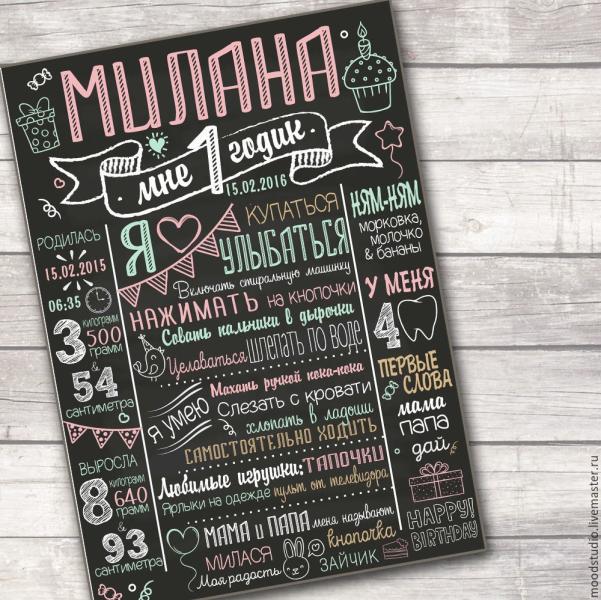 МИЛАНА
мне 1 годик.
15.02.2016
РОДИЛАСЬ
15.02.2015
06:35
3 килограмм
500 грамм
&
54
сантиметра
ВЫРОСЛА
8 килограмм
640 грамм
&
93
сантиметра
Я КУПАТЬСЯ
УЛЫБАТЬСЯ
Включать стиральную машинку
НАЖИМАТЬ НА КНОПОЧКИ
Совать пальчики в дырочки
Целоваться ШЛЕПАТЬ ПО ВОДЕ
Я УМЕЮ
Махать ручкой пока-пока
Слезать с кровати
хлопать в ладоши
САМОСТОЯТЕЛЬНО ХОДИТЬ
Любимые игрушки: ТАПОЧКИ
Ярлыки на одежде пульт от телевизора
МАМА и ПАПА меня называют
МИЛАСЯ кнопочка
Моя радость ЗАЙЧИК
НЯМ-НЯМ
морковка,
молочко
& бананы
У МЕНЯ
4
ПЕРВЫЕ
СЛОВА
мама
ПАПА
дай
HAPPY!
BIRTHDAY
moodstudio.livemaster.ru